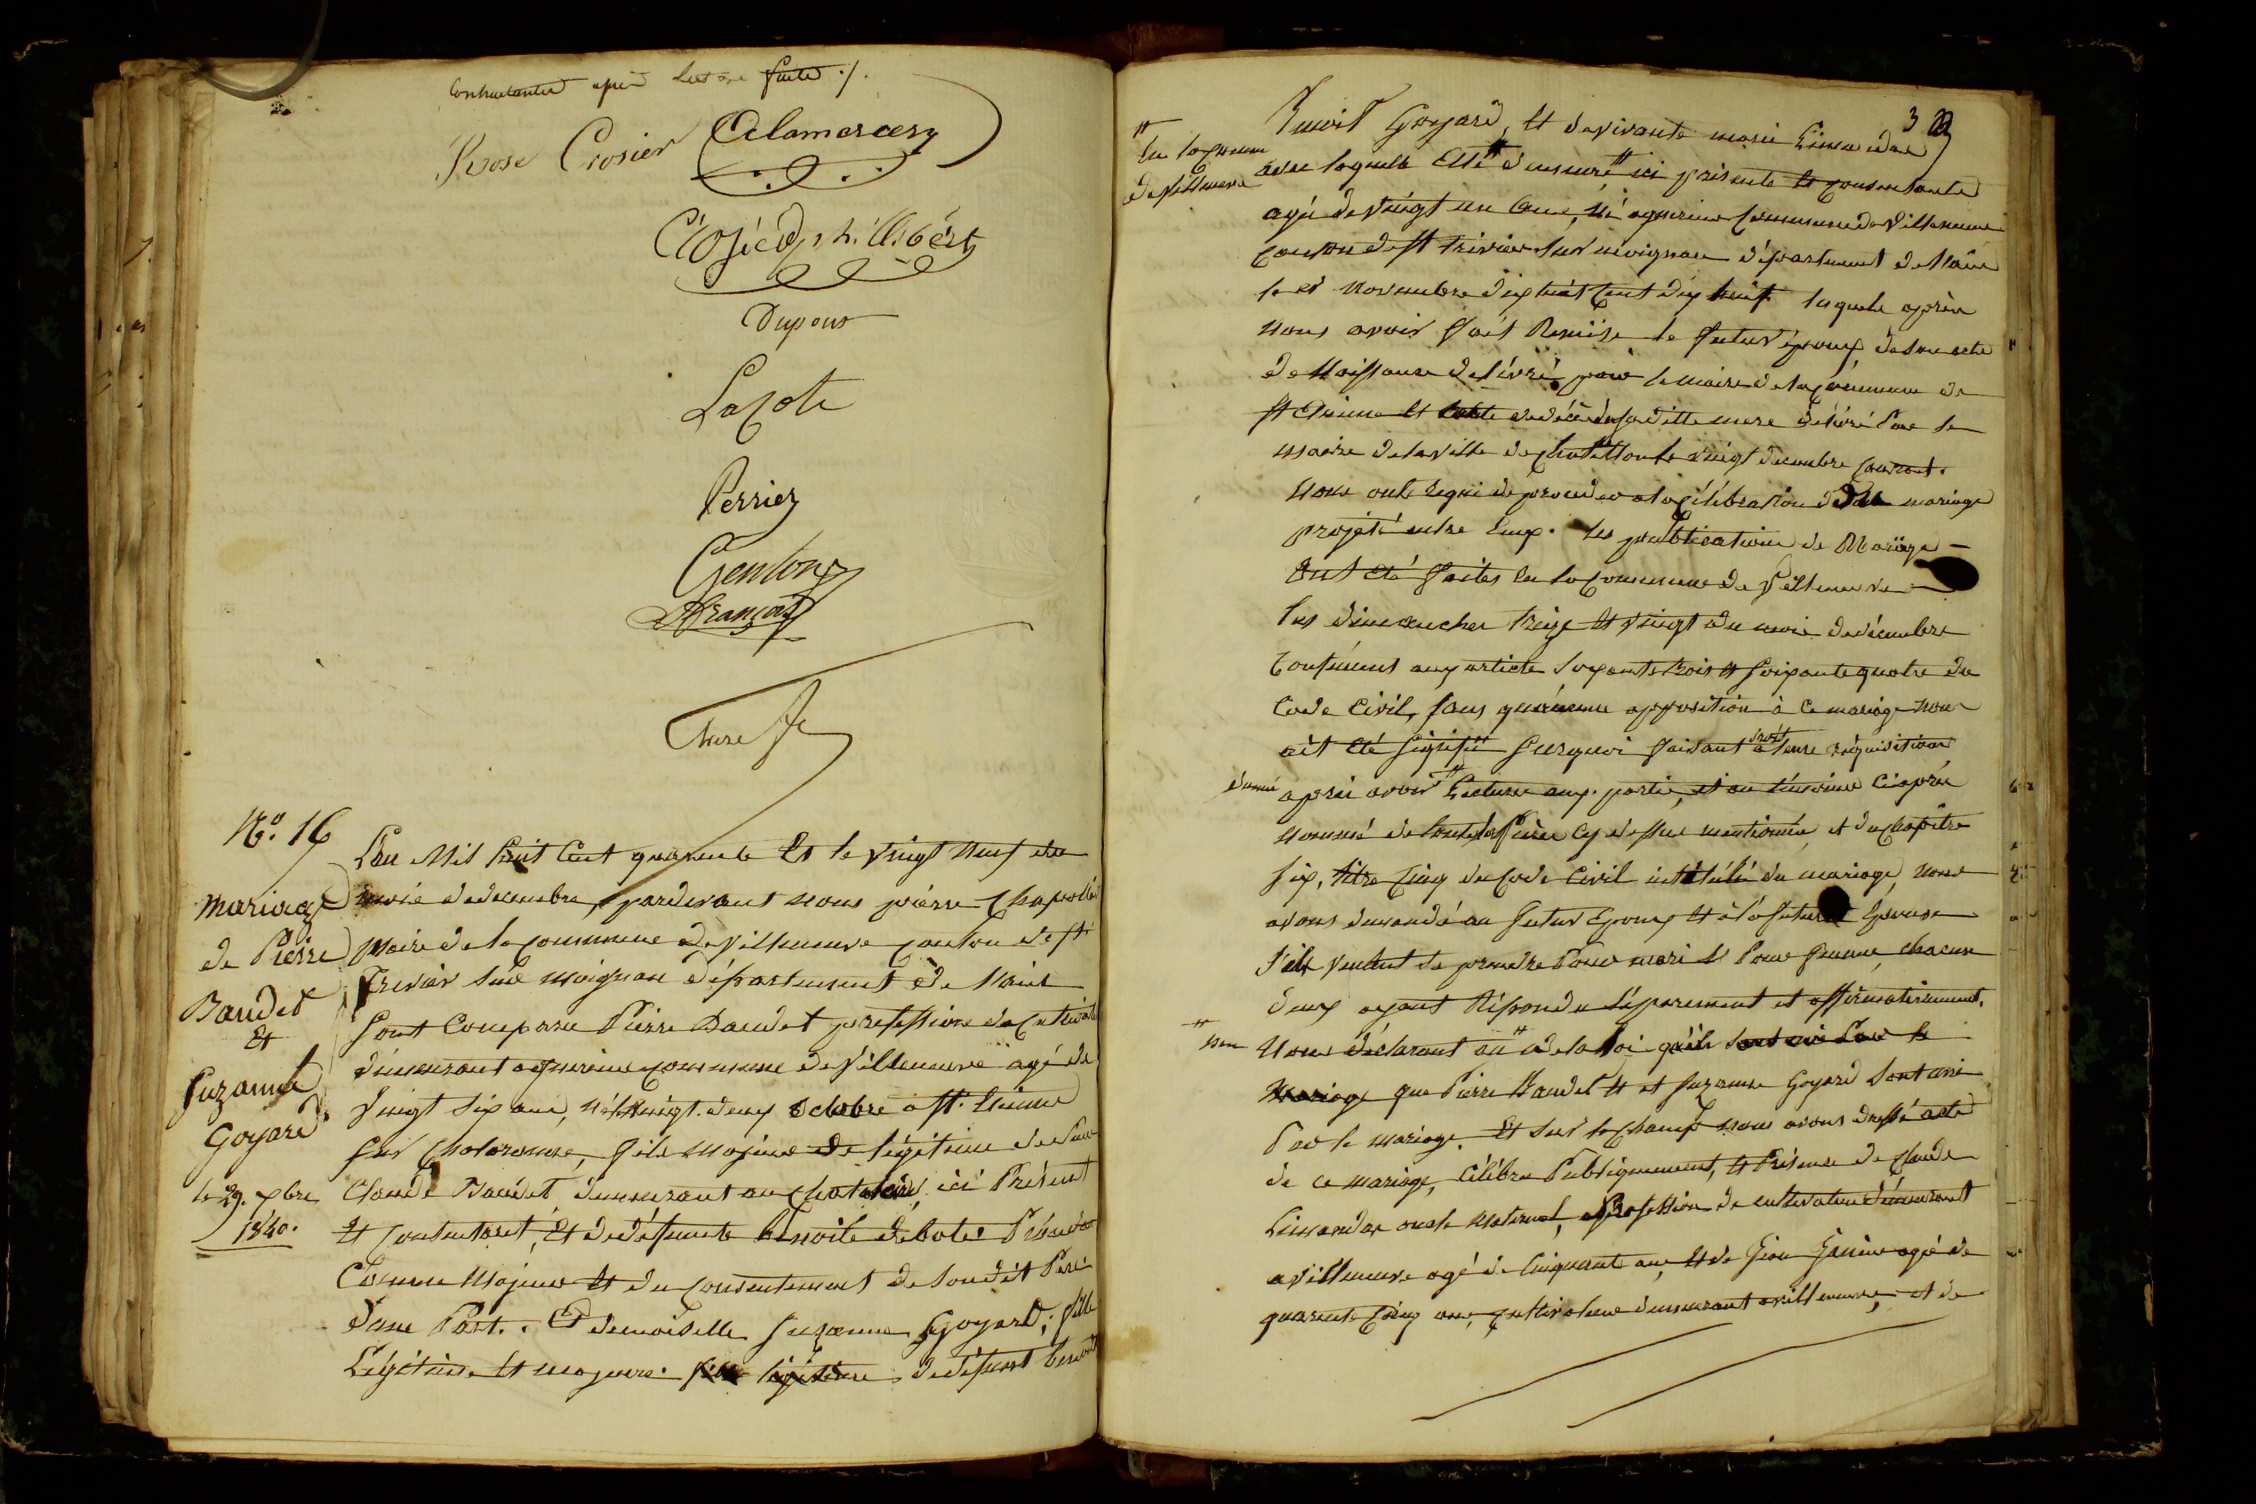 contractantes après lecture faite ./.
Rose Crosier Delamercery
Crosier philibért
Dupont
Lacote
Perrier
Genton
François
Maire
No. 16
Mariage
de Pierre
Baudet
Et
Suzanne
Goyard
le 29. xbre
1840.
L'an Mil huit Cent quarante Et le vingt Neuf du
mois de decembre, pardevant nous pierre Chapolié
Maire de la commune de villeneuve canton de st
Trivier sur moignan département de l'ain
sont Comparu Pierre Baudet profession de Cultivat
démeurant a commune de Villeneuve agé de
Vingt six ans, né le vingt deux Octobre a st. Etienne
sur Chalaronne, fils majeur et légitime de
Claude Baudet demeurant au Chatelard, ici Présent
Et Consentant, Et de défunte Benoite
Comme Majeur Et du consentement de son dit Pére
d'une Part. Et demoiselle Suzanne Goyard, fille
Légitime Et majeure. fille légitime de défunt benoit
3
Benoit Goyard, et de vivante marie Limandas
En la commune
de villeneuve
avec laquelle Elle demeure ici présente et consentante
agée de vingt un ans, né a commune de Villeneuve
Canton de st trivier sur moignan département de l'ain
le Novembre dix huit Cent dix Neuf lesquels après
nous avoir fait Remise le futur époux de son acte
de Naissance délivré par le maire de la Commune de
st Etienne et l'acte de décès de sa ditte mere délivré Par le
maire de la ville de Chatillon le vingt decembre courant.
Nous onts requi de procéder a la célébration du mariage
projété entre Eux. les publications de Mariage
Ont été faites En la Commune de Villeneuve
les dimanches treize et vingt du mois de décembre
Conforment aux article soixante trois et soixante quatre du
Code Civil, sans qu'aucune opposition à Ce mariage nous
ait été signifié sur quoi faisant droit a leurs réquisition
donné
après avoir Lecture aux partie, et au témoins Ci après
nommé de toute les Pièces Cy dessus mentionnée, et du chapitre
six, titre Cinq du Code Civil intitulé du mariage, nous
avons demandé au futur Epoux Et à la future Epouse
s'ils veulent se prendre Pour mari et Pour femme, chacun
d'eux ayant Répondu séparement et affirmativement,
nom
Nous déclarons au de la Loi qu'ils sont uni Par le
Mariage que Pierre Baudet et et suzanne Goyard sont uni
Par le mariage. Et sur le Champ nous avons dréssé acte
de ce mariage, Célébré Publiquement, En Présence de Claude
Limandas oncle maternel, Profession de cultivateur démeurant
a villeneuve agé de Cinquante ans, Et de agé de
quarante Cinq ans, Cultivateur demeurant a villeneuve, et de